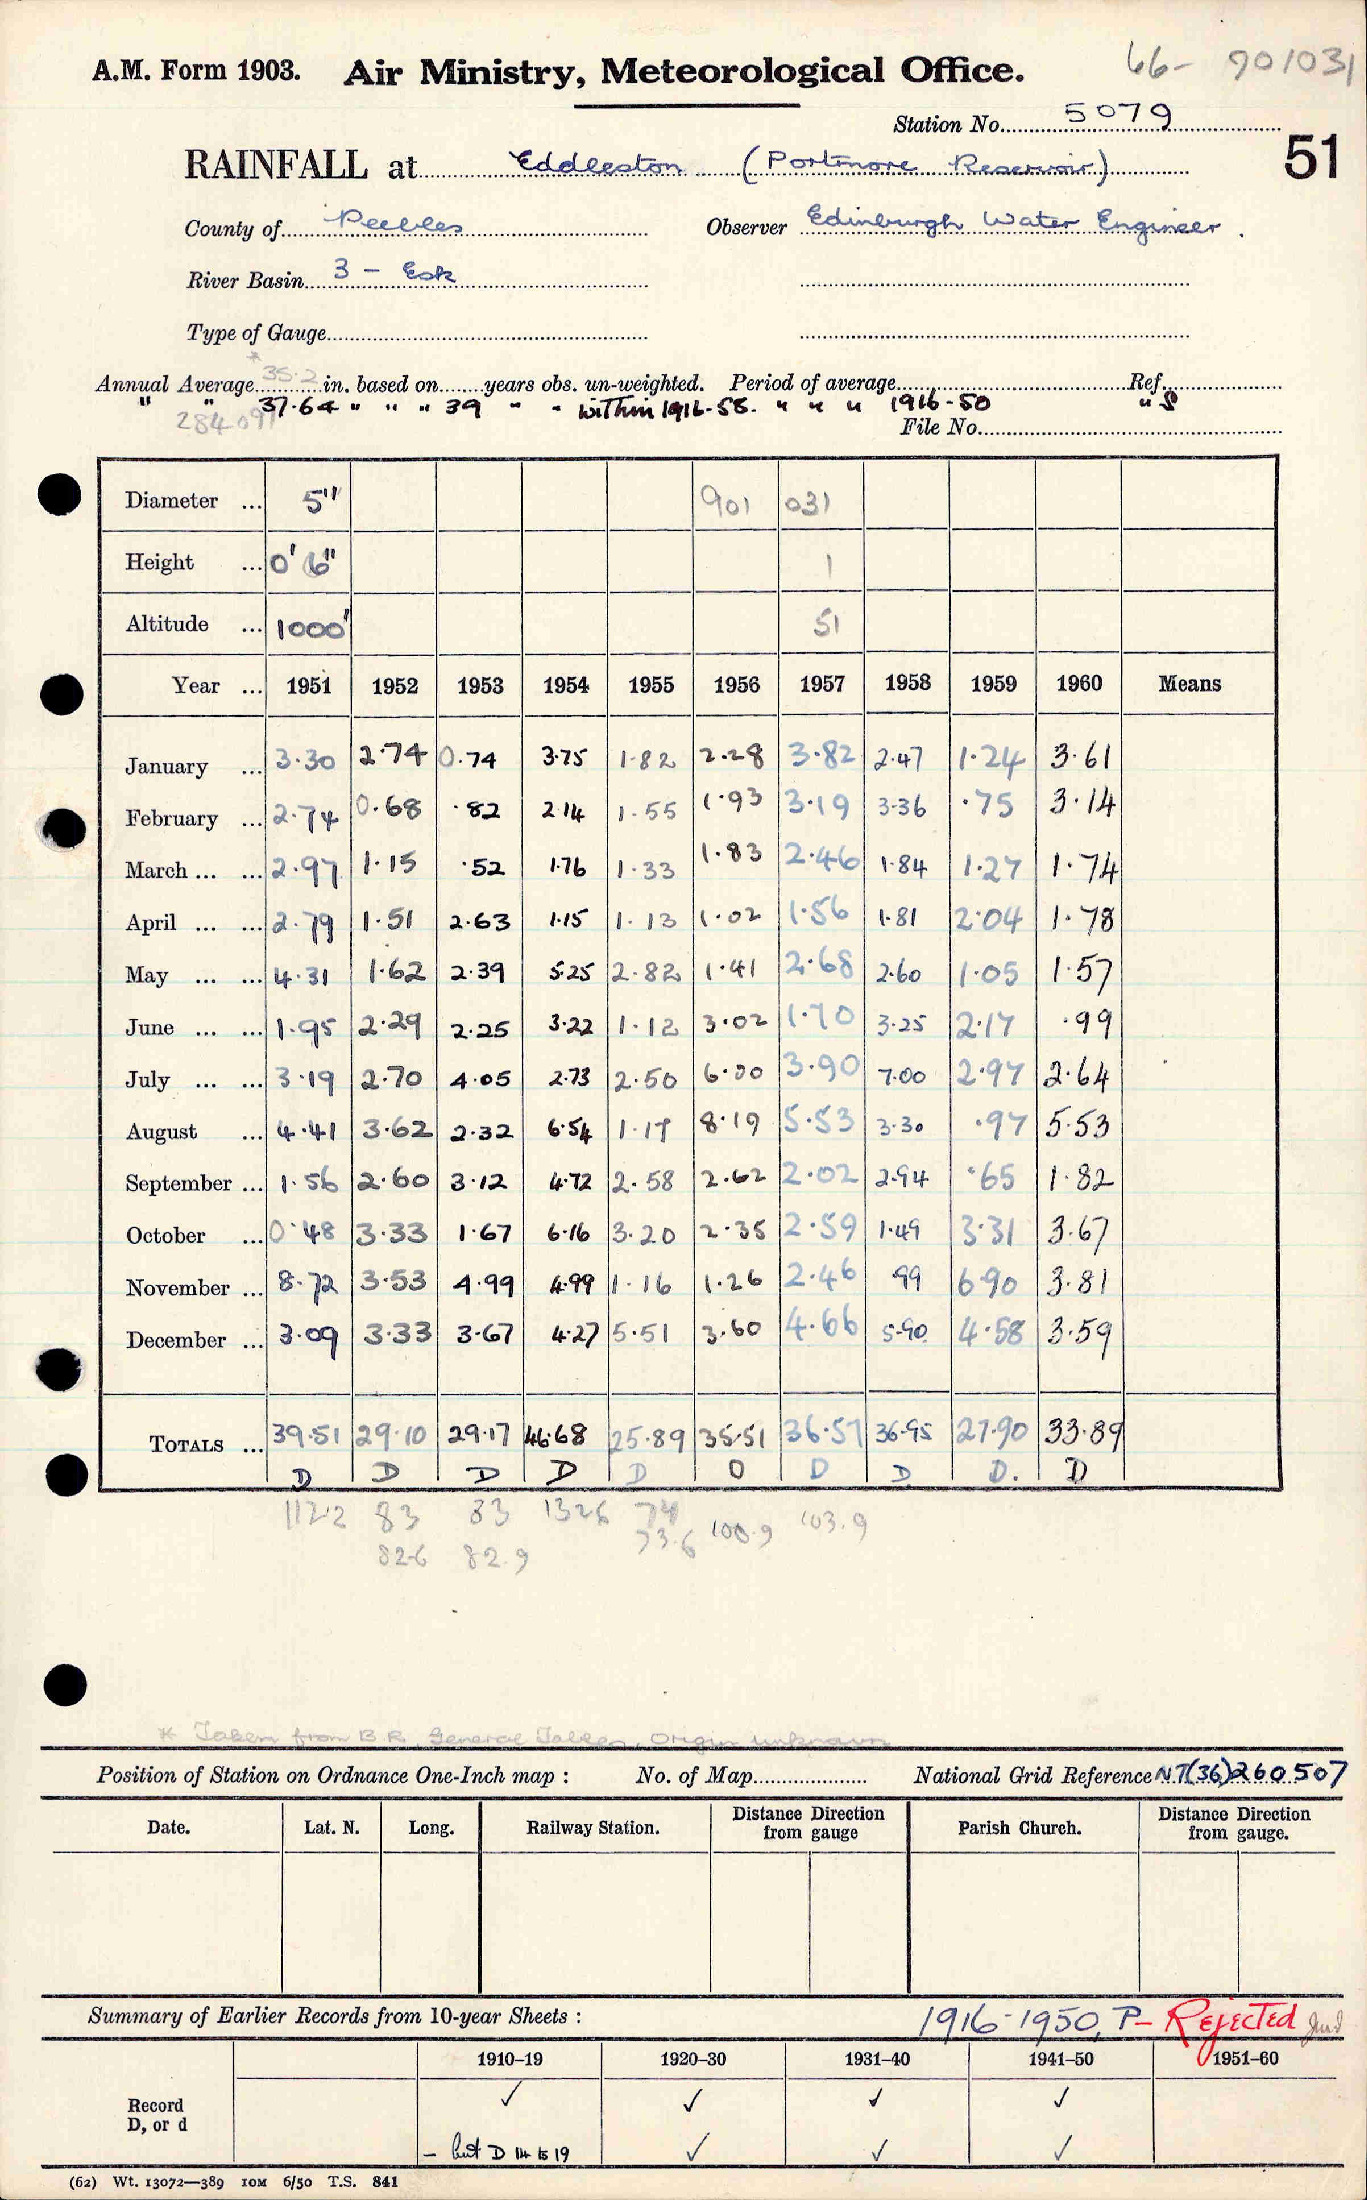 66- 901031
A.M. Form 1903. Air Ministry, Meteorological Office.
Station No. 5079
51
RAINFALL at Eddleston (Portmore Reservoir)
County of Peebles Observer Edinburgh Water Engineer.
River Basin 3 - Esk
Type of Gauge
*
Annual Average 35.2 in. based on years obs. un-weighted. Period of average Ref.
" " 37.64 " " " 39 " - within 1916-58. " " " 1916-50 " S
File No.
Diameter ... 5" 901 031
Height ... 0' 6" 1
Altitude ... 1000' 51
Year ... 1951 1952 1953 1954 1955 1956 1957 1958 1959 1960 Means
January ... 3.30 2.74 0.74 3.75 1.82 2.28 3.82 2.47 1.24 3.61
February ... 2.74 0.68 .82 2.14 1.55 1.93 3.19 3.36 .75 3.14
March ... ... 2.97 1.15 .52 1.76 1.33 1.83 2.46 1.84 1.27 1.74
April ... ... 2.79 1.51 2.63 1.15 1.13 1.02 1.56 1.81 2.04 1.78
May ... ... 4.31 1.62 2.39 5.25 2.82 1.41 2.68 2.60 1.05 1.57
June ... ... 1.95 2.29 2.25 3.22 1.12 3.02 1.70 3.25 2.17 .99
July ... ... 3.19 2.70 4.05 2.73 2.50 6.00 3.90 7.00 2.97 2.64
August ... 4.41 3.62 2.32 6.54 1.17 8.19 5.53 3.30 .97 5.53
September ... 1.56 2.60 3.12 4.72 2.58 2.62 2.02 2.94 .65 1.82
October ... 0.48 3.33 1.67 6.16 3.20 2.35 2.59 1.49 3.31 3.67
November ... 8.72 3.53 4.99 4.99 1.16 1.26 2.46 .99 6.90 3.81
December ... 3.09 3.33 3.67 4.27 5.51 3.60 4.66 5.90 4.58 3.59
TOTALS ... 39.51 29.10 29.17 46.68 25.89 35.51 36.57 36.95 27.90 33.89
D D D D D D D D D. D
112.2 83 83 132.6 74 100.9 103.9
82.6 82.9 73.6
* Taken from B R General Tables, Origin unknown
Position of Station on Ordnance One-Inch map : No. of Map National Grid Reference NT(36)260507
Date. Lat. N. Long. Railway Station. Distance Direction from gauge Parish Church. Distance Direction from gauge.
Summary of Earlier Records from 10-year Sheets : 1916-1950, P- Rejected
1910–19 1920–30 1931–40 1941–50 1951–60
Record ✓ ✓ ✓ ✓
D, or d
- but D 14 to 19 ✓ ✓ ✓
(62) Wt. 13072—389 10M 6/50 T.S. 841